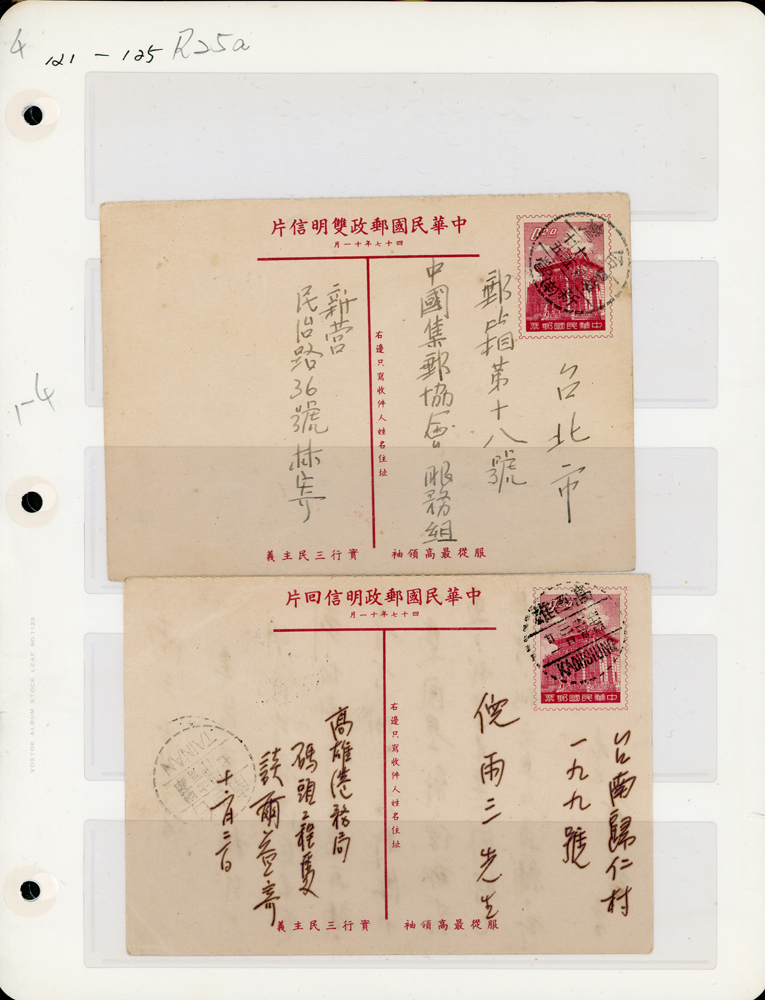 4 121 - 125 R25a
1-4
VOSTOR ALBUM STOCK LEAF NO.1125
中華民國郵政雙明信片
四十七年十一月
0.20
中華民國郵票
台北市
郵箱第十八號
中國集郵協會服務組
右邊只寫收件人姓名住址
新營
民治路36號林寄
服從最高領袖 實行三民主義
中華民國郵政明信回片
四十七年十一月
中華民國郵票
KAOHSIUNG
台南歸仁村
一九九號
倪雨三先生
右邊只寫收件人姓名住址
高雄港務局
碼頭工程隻
談爾益寄
十二月二日
TAINAN
服從最高領袖 實行三民主義